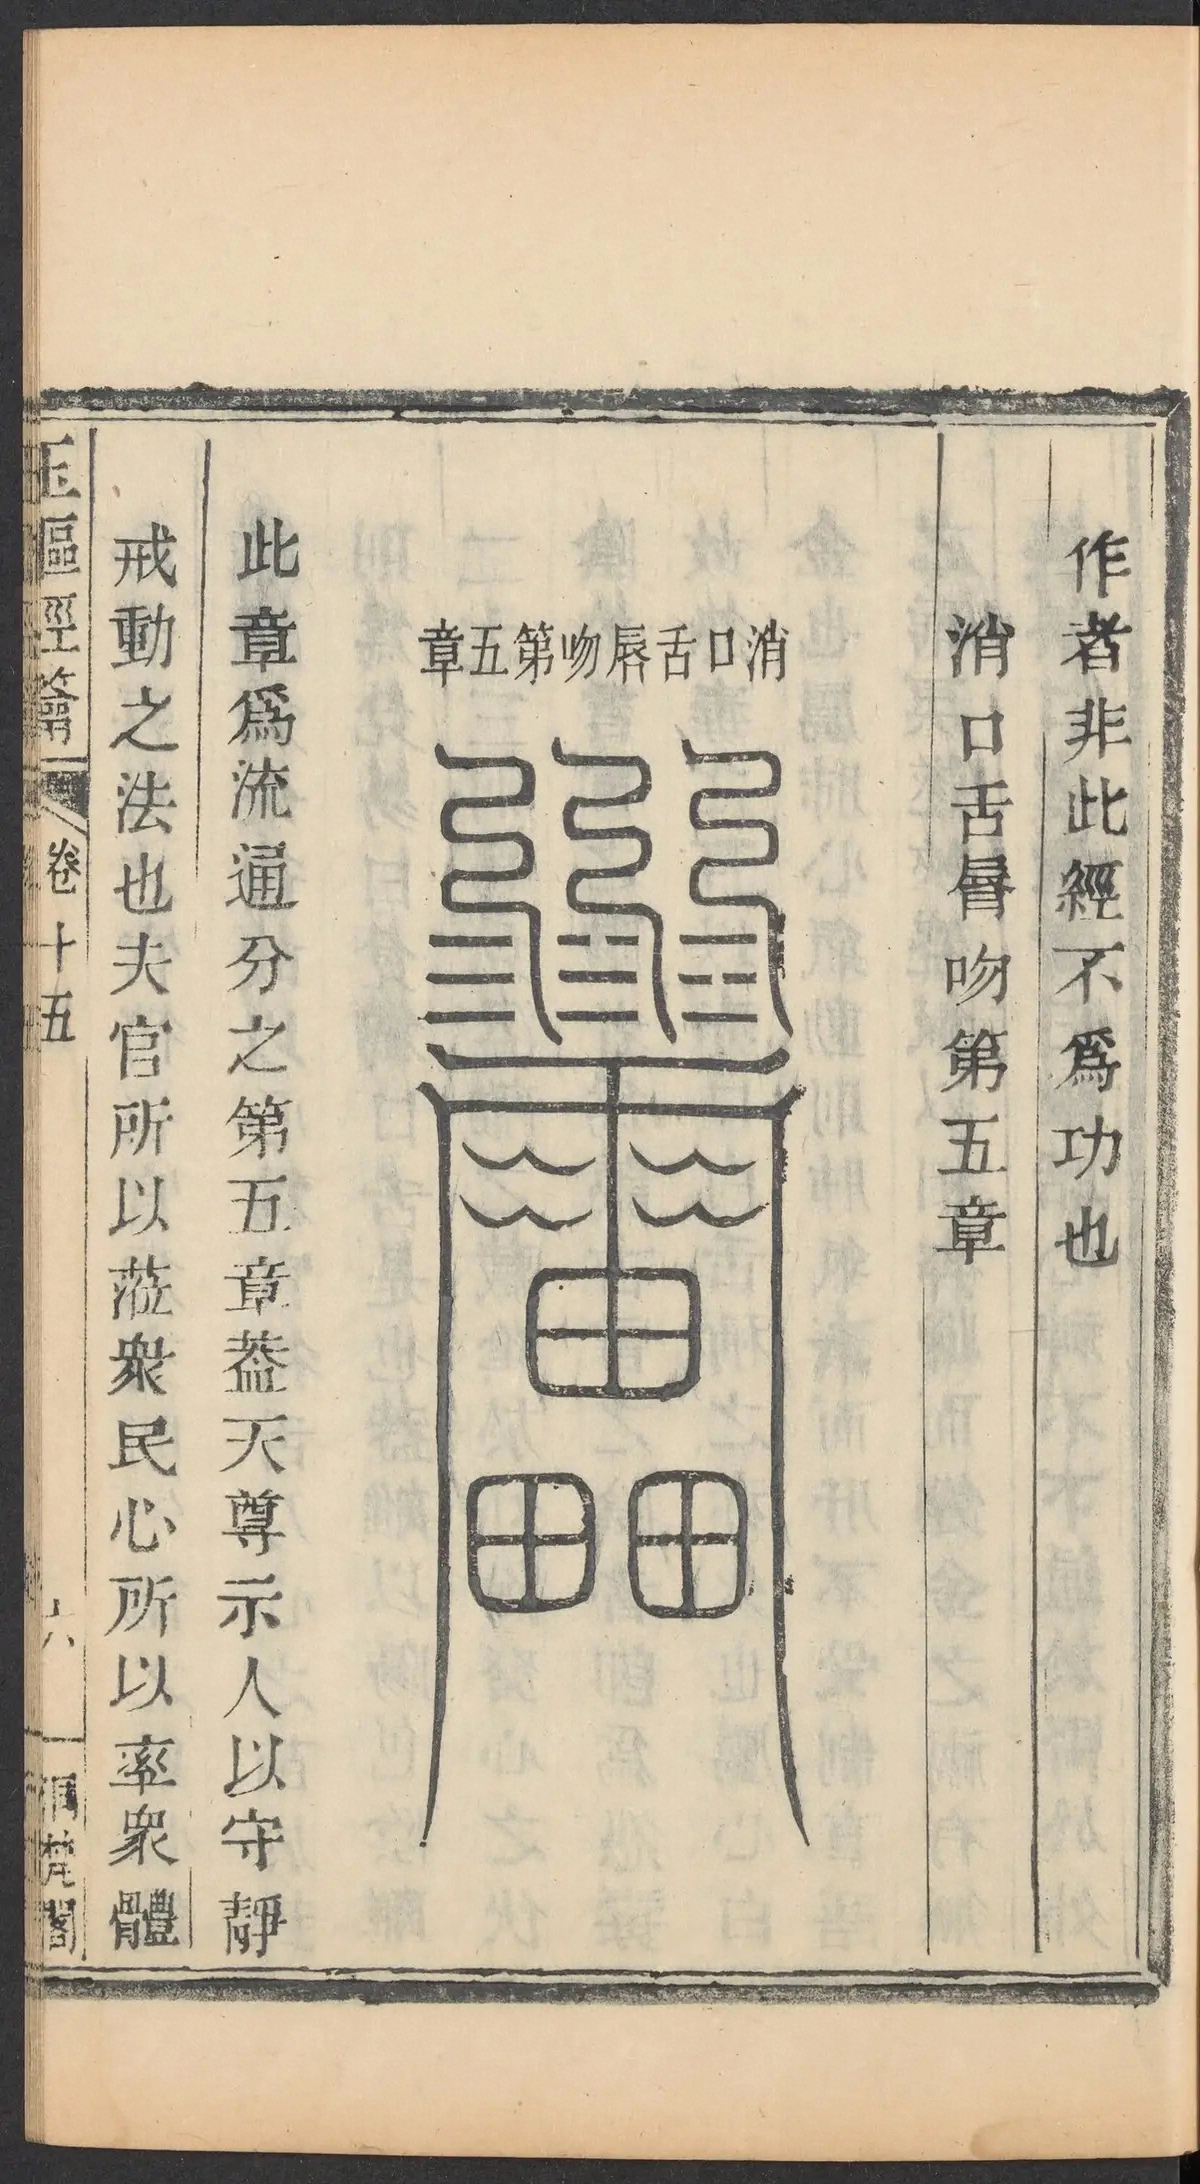 作者非此經不爲功也
消口舌脣吻第五章
消口舌脣吻第五章
此章爲流通分之第五章葢天尊示人以守靜
戒動之法也夫官所以蒞衆民心所以率衆體
玉樞經籥
卷十五
六
梵閣